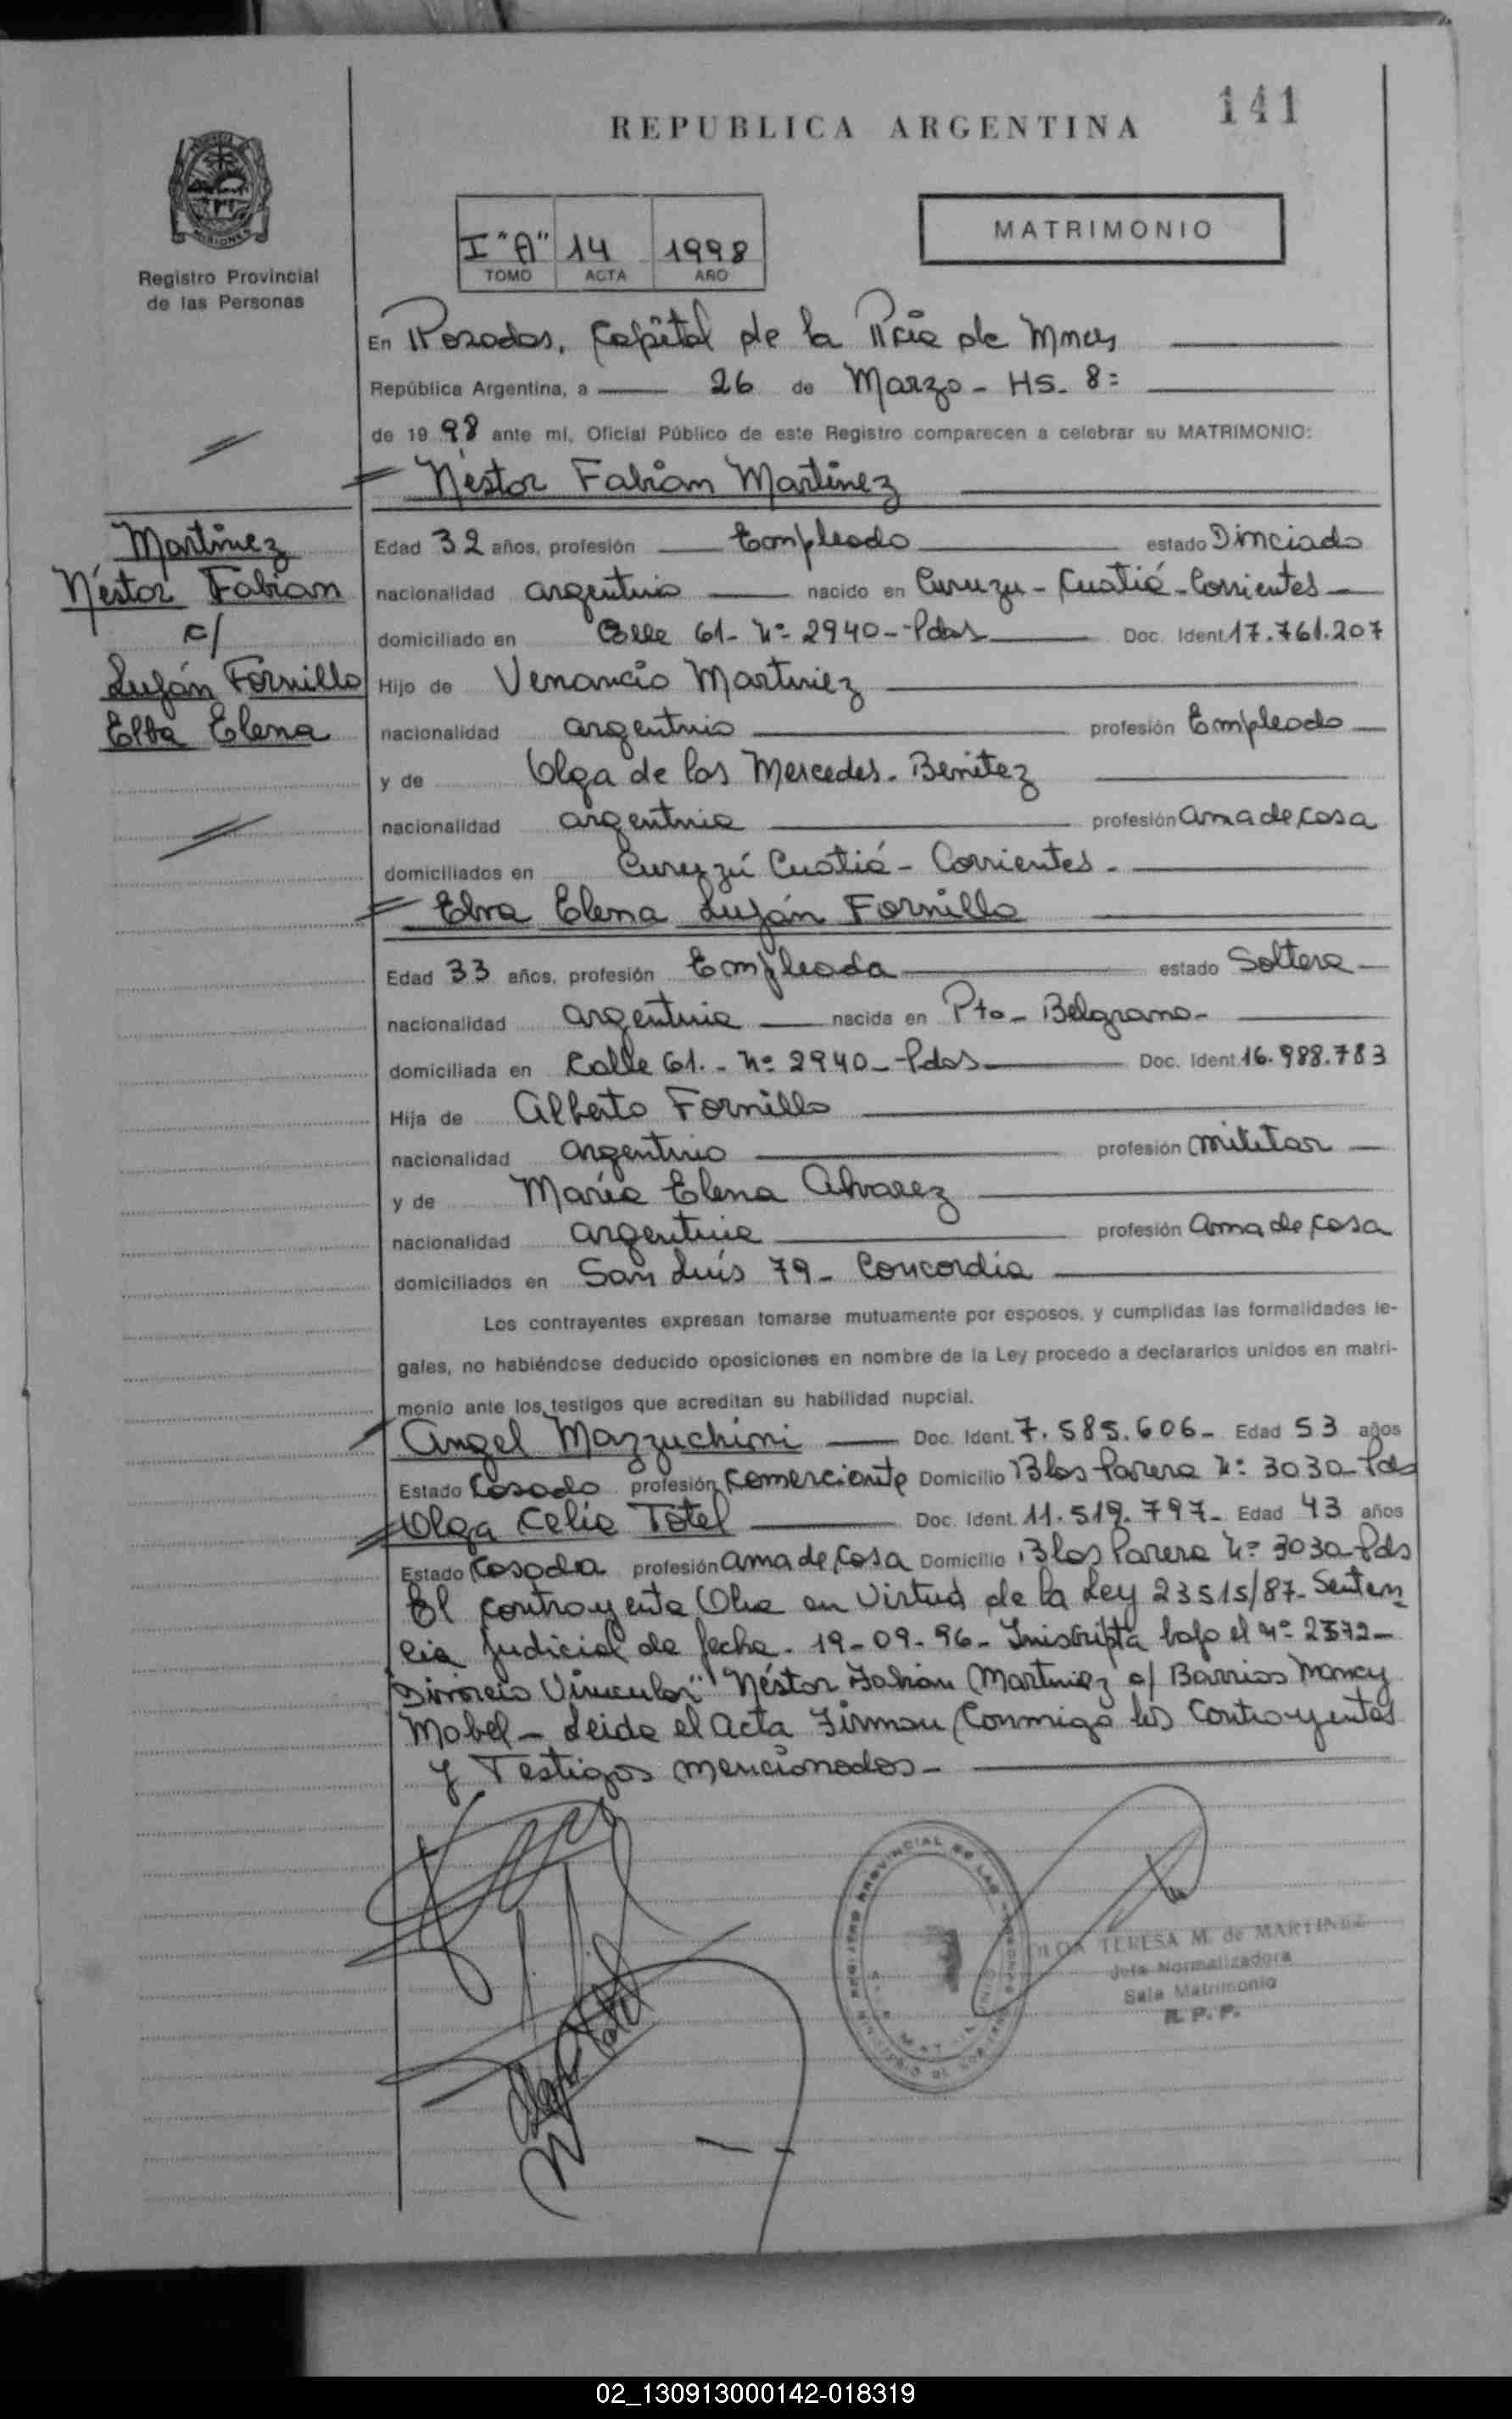 141
REPUBLICA ARGENTINA
MATRIMONIO
I "A" 14 1998
TOMO ACTA AÑO
Registro Provincial
de las Personas
En Posadas, Capital de la Pcia de Mnes
República Argentina, a 26 de Marzo - HS. 8=
de 19 98 ante mí, Oficial Público de este Registro comparecen a celebrar su MATRIMONIO:
Néstor Fabian Martinez
Martinez
Néstor Fabian
c/
Luján Fornillo
Elba Elena
Edad 32 años, profesión Empleado estado Divorciado
nacionalidad argentino nacido en Curuzu - Cuatiá - Corrientes
domiciliado en Calle 61 - Nº 2940 - Pdas Doc. Ident. 17.761.207
Hijo de Venancio Martinez
nacionalidad argentino profesión Empleado
y de Olga de las Mercedes - Benitez
nacionalidad argentina profesión ama de casa
domiciliados en Curuzú Cuatiá - Corrientes -
Elva Elena Luján Fornillo
Edad 33 años, profesión Empleada estado Soltera
nacionalidad argentina nacida en Pto - Belgrano -
domiciliada en Calle 61. - Nº 2940 - Pdas Doc. Ident. 16.988.783
Hija de Alberto Fornillo
nacionalidad argentino profesión militar
y de María Elena Alvarez
nacionalidad argentina profesión ama de casa
domiciliados en San Luis 79 - Concordia
Los contrayentes expresan tomarse mutuamente por esposos, y cumplidas las formalidades le-
gales, no habiéndose deducido oposiciones en nombre de la Ley procedo a declararlos unidos en matri-
monio ante los testigos que acreditan su habilidad nupcial.
Angel Mazzuchini Doc. Ident. 7.585.606 - Edad 53 años
Estado Casado profesión Comerciante Domicilio Blas Parera Nº 3030 - Pdas
Olga Celia Totel Doc. Ident. 11.519.797 - Edad 43 años
Estado Casada profesión ama de casa Domicilio Blas Parera Nº 3030 - Pds
El contrayente en Virtud de la Ley 23515/87 - Senten
cia Judicial de fecha - 19-09-96 - Inscripta bajo el Nº
Divorcio Vincular" Néstor Fabian Martinez c/ Barrios Nancy
Mabel - Leida el Acta Firman Conmigo los Contrayentes
y Testigos mencionados -
REGISTRO PROVINCIAL DE LAS PERSONAS
TERESA M. de MARTINEZ
Jefa Normalizadora
Sala Matrimonio
R. P. P.
02_130913000142-018319